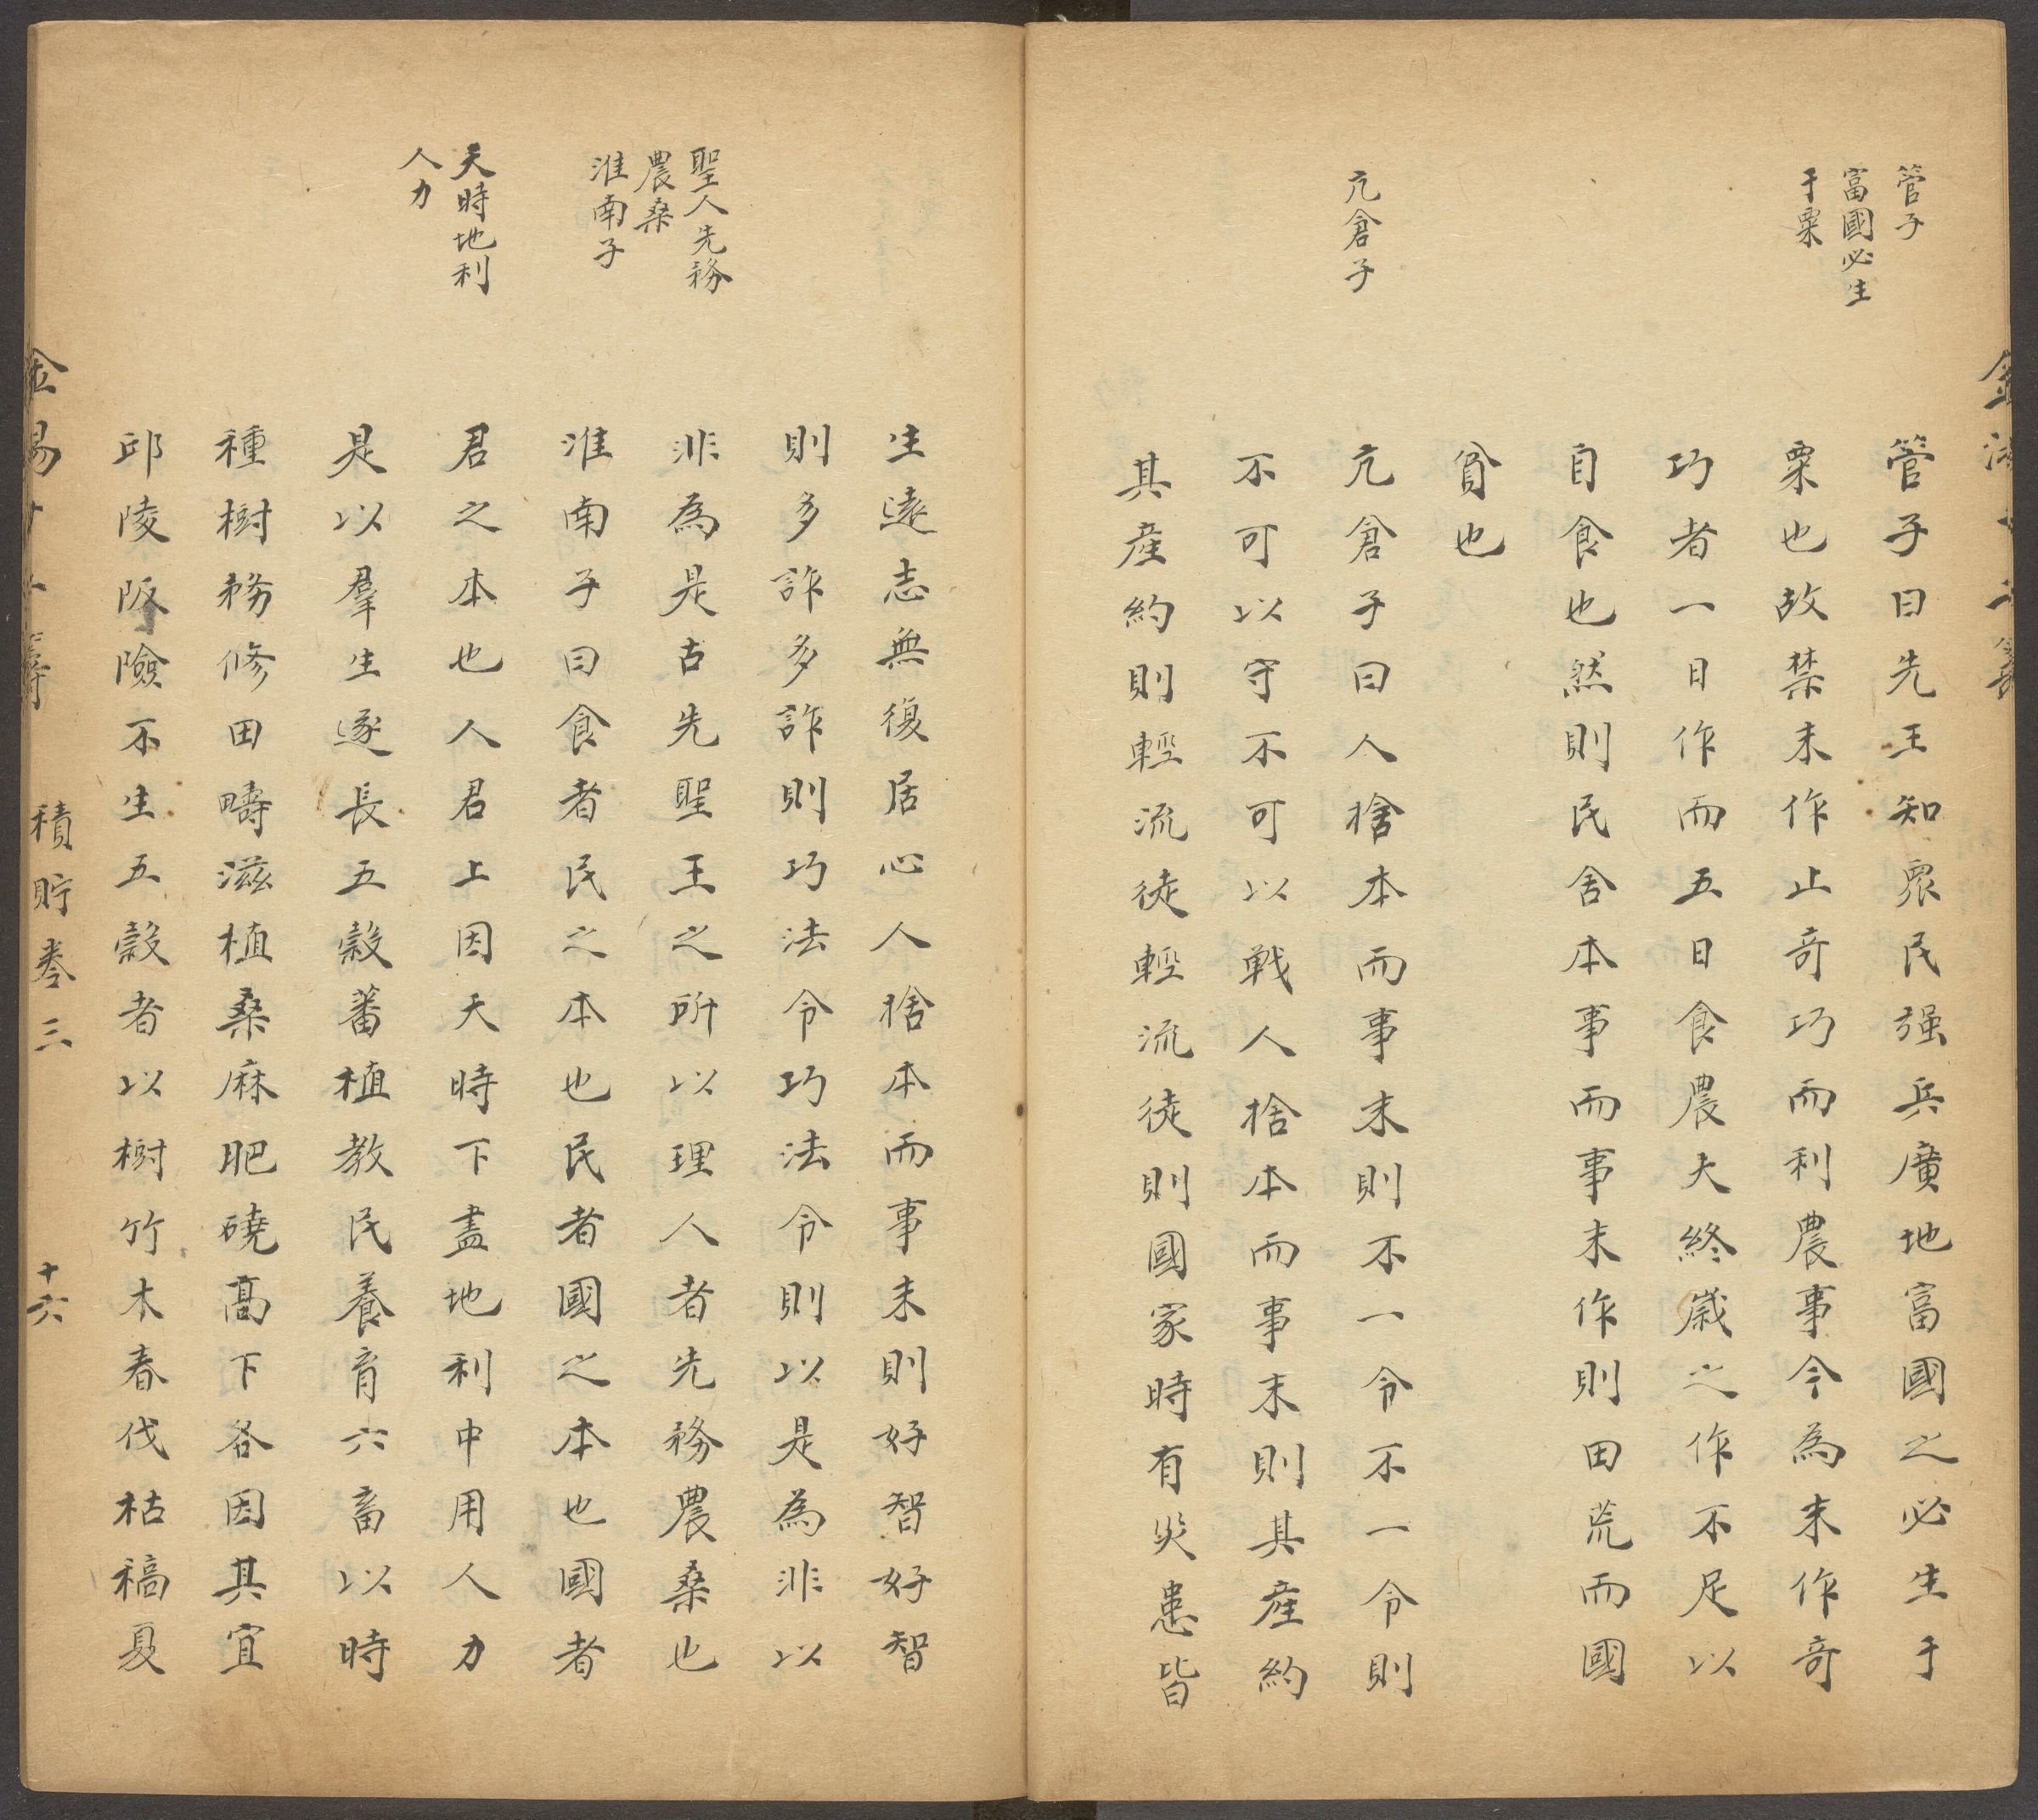 管子
富國必生
于粟
亢倉子
管子曰先王知衆民强兵廣地富國之必生于
粟也故禁末作止奇巧而利農事今為末作奇
巧者一日作而五日食農夫終歲之作不足以
自食也然則民舍本事而事末作則田荒而國
貧也
亢倉子曰人捨本而事末則不一令不一令則
不可以守不可以戰人捨本而事末則其產約
其產約則輕流徒輕流徒則國家時有災患皆
聖人先務
農桑
淮南子
天時地利
人力
生遠志無復居心人捨本而事末則好智好智
則多詐多詐則巧法令巧法令則以是為非以
非為是古先聖王之所以理人者先務農桑也
淮南子曰食者民之本也民者國之本也國者
君之本也人君上因天時下盡地利中用人力
是以羣生遂長五穀蕃植教民養育六畜以時
種樹務修田疇滋植桑麻肥磽高下各因其宜
邱陵阪險不生五穀者以樹竹木春伐枯槁夏
積貯卷三
十六